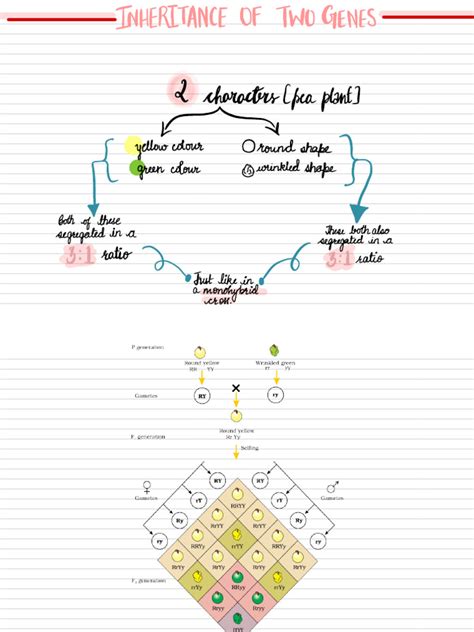 INHERITANCE OF TWO GENES
2 characters [pea plant]
yellow colour
green colour
round shape
wrinkled shape
Both of these
segregated in a
3:1 ratio
These both also
segregated in a
3:1 ratio
Just like in
a monohybrid
cross.
P generation
Round yellow
RR YY
Wrinkled green
rr yy
Gametes
RY
×
ry
Round yellow
Rr Yy
F₁ generation
Selfing
♀
♂
Gametes
Gametes
RY
RY
rY
rY
Ry
Ry
ry
ry
RRYY
RrYY
RrYY
RRYy
rrYY
RRYy
RrYy
RrYy
RrYy
RrYy
rrYy
RRyy
rrYy
F₂ generation
Rryy
Rryy
rryy